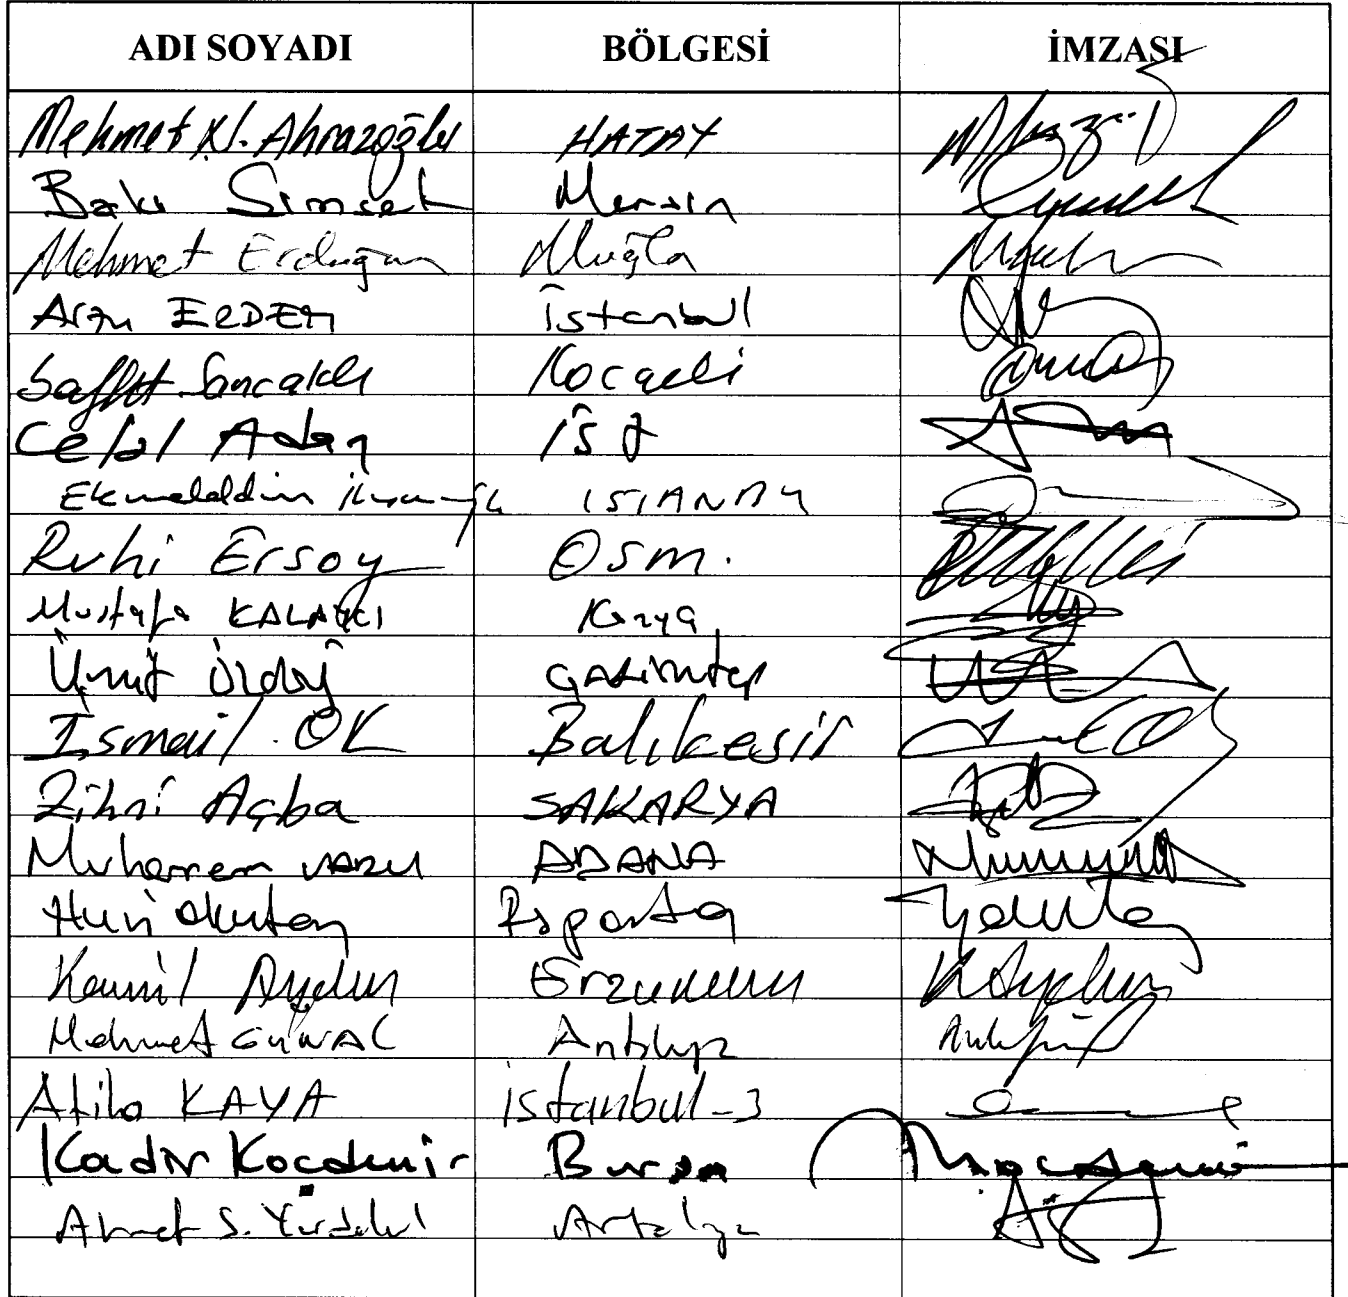 ADI SOYADI BÖLGESİ İMZASI
Mehmet N. Ahrazoğlu HATAY
Baki Şimşek Mersin
Mehmet Erdoğan Muğla
Arzu ERDEM İstanbul
Saffet Sancaklı Kocaeli
Celal Adan İst
Ekmeleddin İhsanoğlu ISTANBUL
Ruhi Ersoy Osm.
Mustafa KALAYCI Konya
Ümit Özdağ GAZİANTEP
İsmail OK Balıkesir
Zihni Açba SAKARYA
Muharrem VARLI ADANA
Nuri Okutan Isparta
Kamil Aydın Erzurum
Mehmet GÜNAL Antalya
Atila KAYA istanbul-3
Kadir Koçdemir Bursa
Ahmet S. Yurdakul Antalya